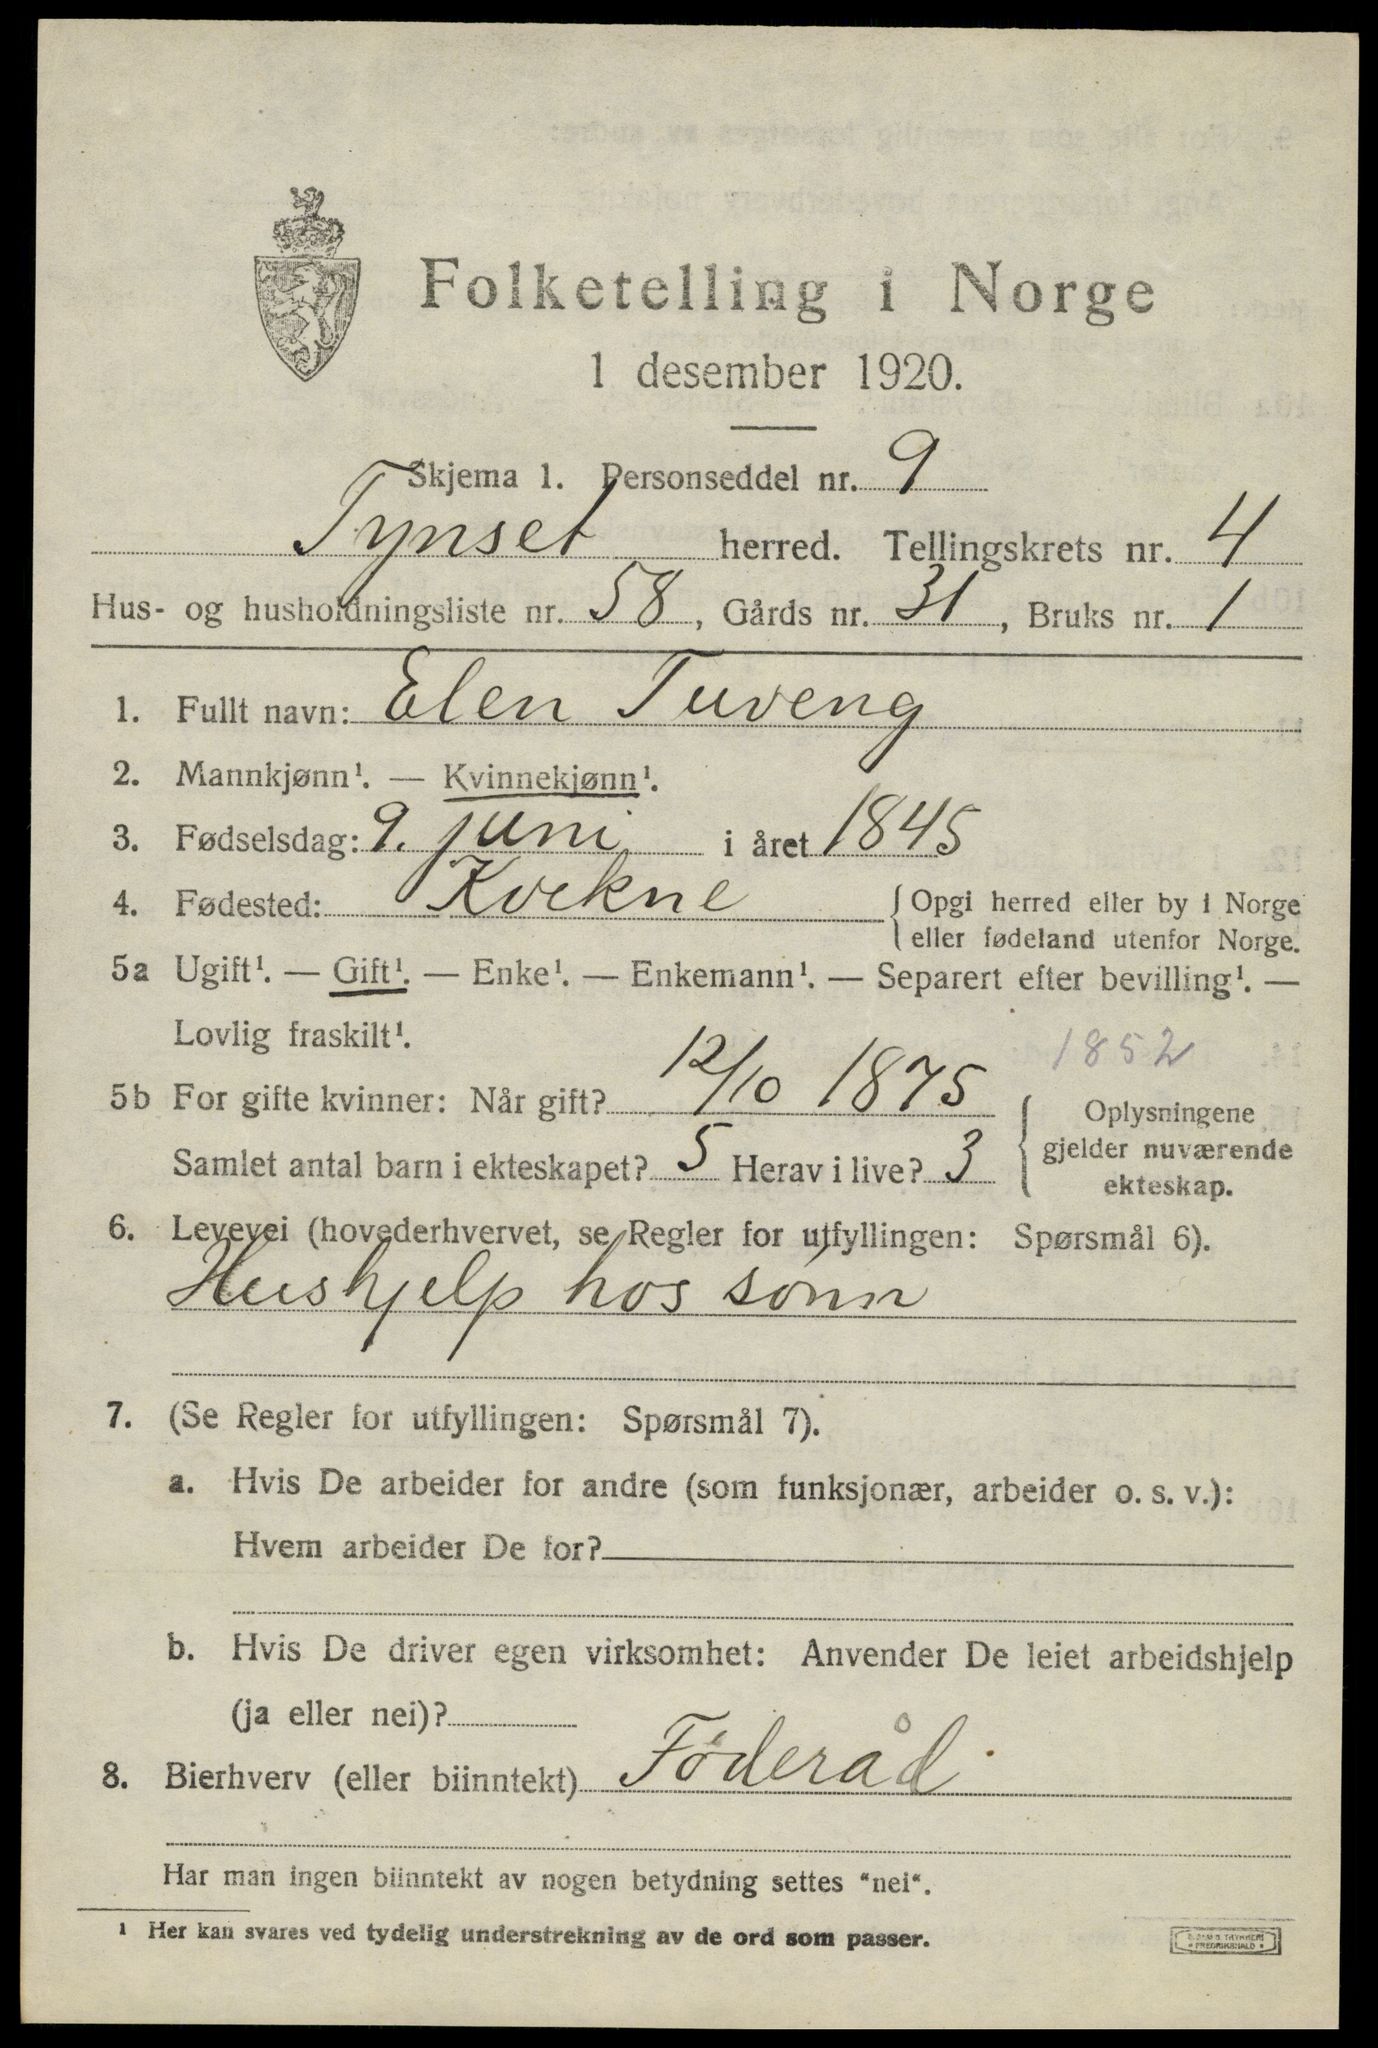 Folketelling i Norge
1 desember 1920.
Skjema 1. Personseddel nr. 9
Tynset herred. Tellingskrets nr. 4
Hus- og husholdningsliste nr. 58, Gårds nr. 31, Bruks nr. 1
1. Fullt navn: Elen Tuveng
2. Mannkjønn¹. — Kvinnekjønn¹.
3. Fødselsdag: 9. juni i året 1845
4. Fødested: Kvekne { Opgi herred eller by i Norge
eller fødeland utenfor Norge.
5a Ugift¹. — Gift¹. — Enke¹. — Enkemann¹. — Separert efter bevilling¹. —
Lovlig fraskilt¹. 1852
5b For gifte kvinner: Når gift? 12/10 1875
Samlet antal barn i ekteskapet? 5 Herav i live? 3
{ Oplysningene
gjelder nuværende
ekteskap.
6. Levevei (hovederhvervet, se Regler for utfyllingen: Spørsmål 6).
Hushjelp hos sønn
7. (Se Regler for utfyllingen: Spørsmål 7).
a. Hvis De arbeider for andre (som funksjonær, arbeider o. s. v.):
Hvem arbeider De for?
b. Hvis De driver egen virksomhet: Anvender De leiet arbeidshjelp
(ja eller nei)?
8. Bierhverv (eller biinntekt) Føderåd
Har man ingen biinntekt av nogen betydning settes "nei".
¹ Her kan svares ved tydelig understrekning av de ord som passer.